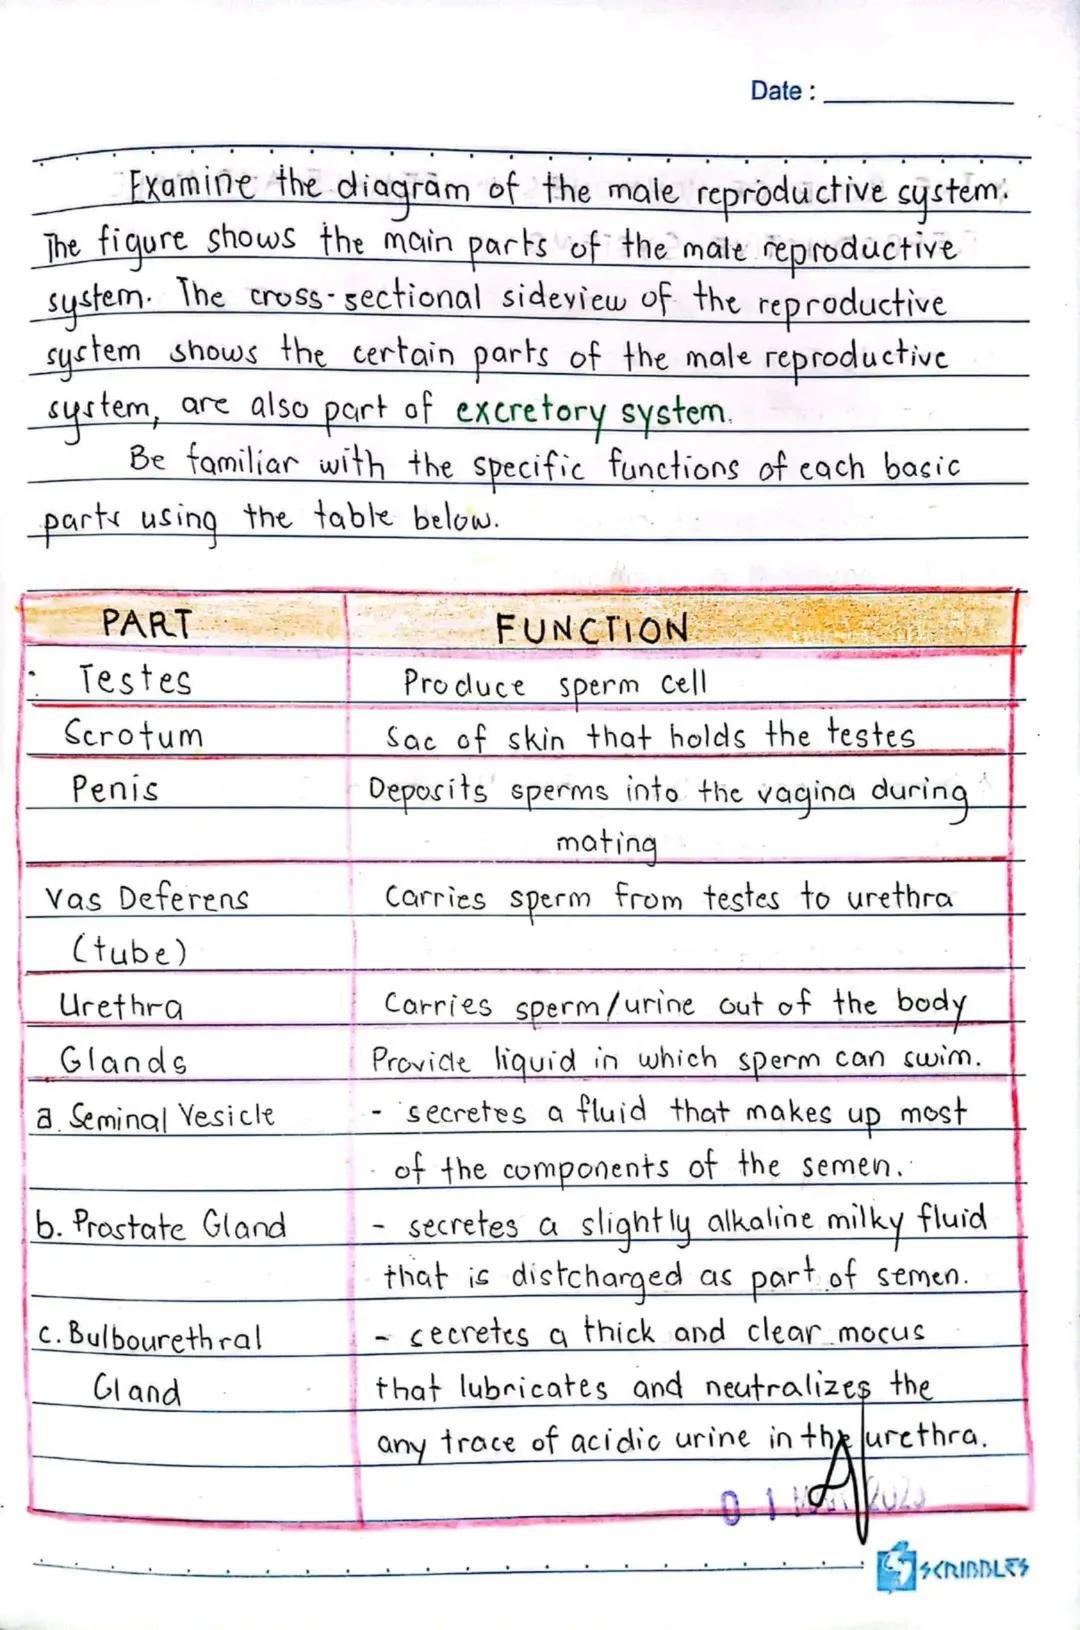 Date :
Examine the diagram of the male reproductive system.
The figure shows the main parts of the male reproductive
system. The cross-sectional sideview of the reproductive
system shows the certain parts of the male reproductive
system, are also part of excretory system.
Be familiar with the specific functions of each basic
parts using the table below.
PART FUNCTION
Testes Produce sperm cell
Scrotum Sac of skin that holds the testes
Penis Deposits sperms into the vagina during
mating
Vas Deferens Carries sperm from testes to urethra
(tube)
Urethra Carries sperm/urine out of the body
Glands Provide liquid in which sperm can swim.
a. Seminal Vesicle - secretes a fluid that makes up most
of the components of the semen.
b. Prostate Gland - secretes a slightly alkaline milky fluid
that is distcharged as part of semen.
c. Bulbourethral - secretes a thick and clear mocus
Gland that lubricates and neutralizes the
any trace of acidic urine in the urethra.
0 1
SCRIBBLES